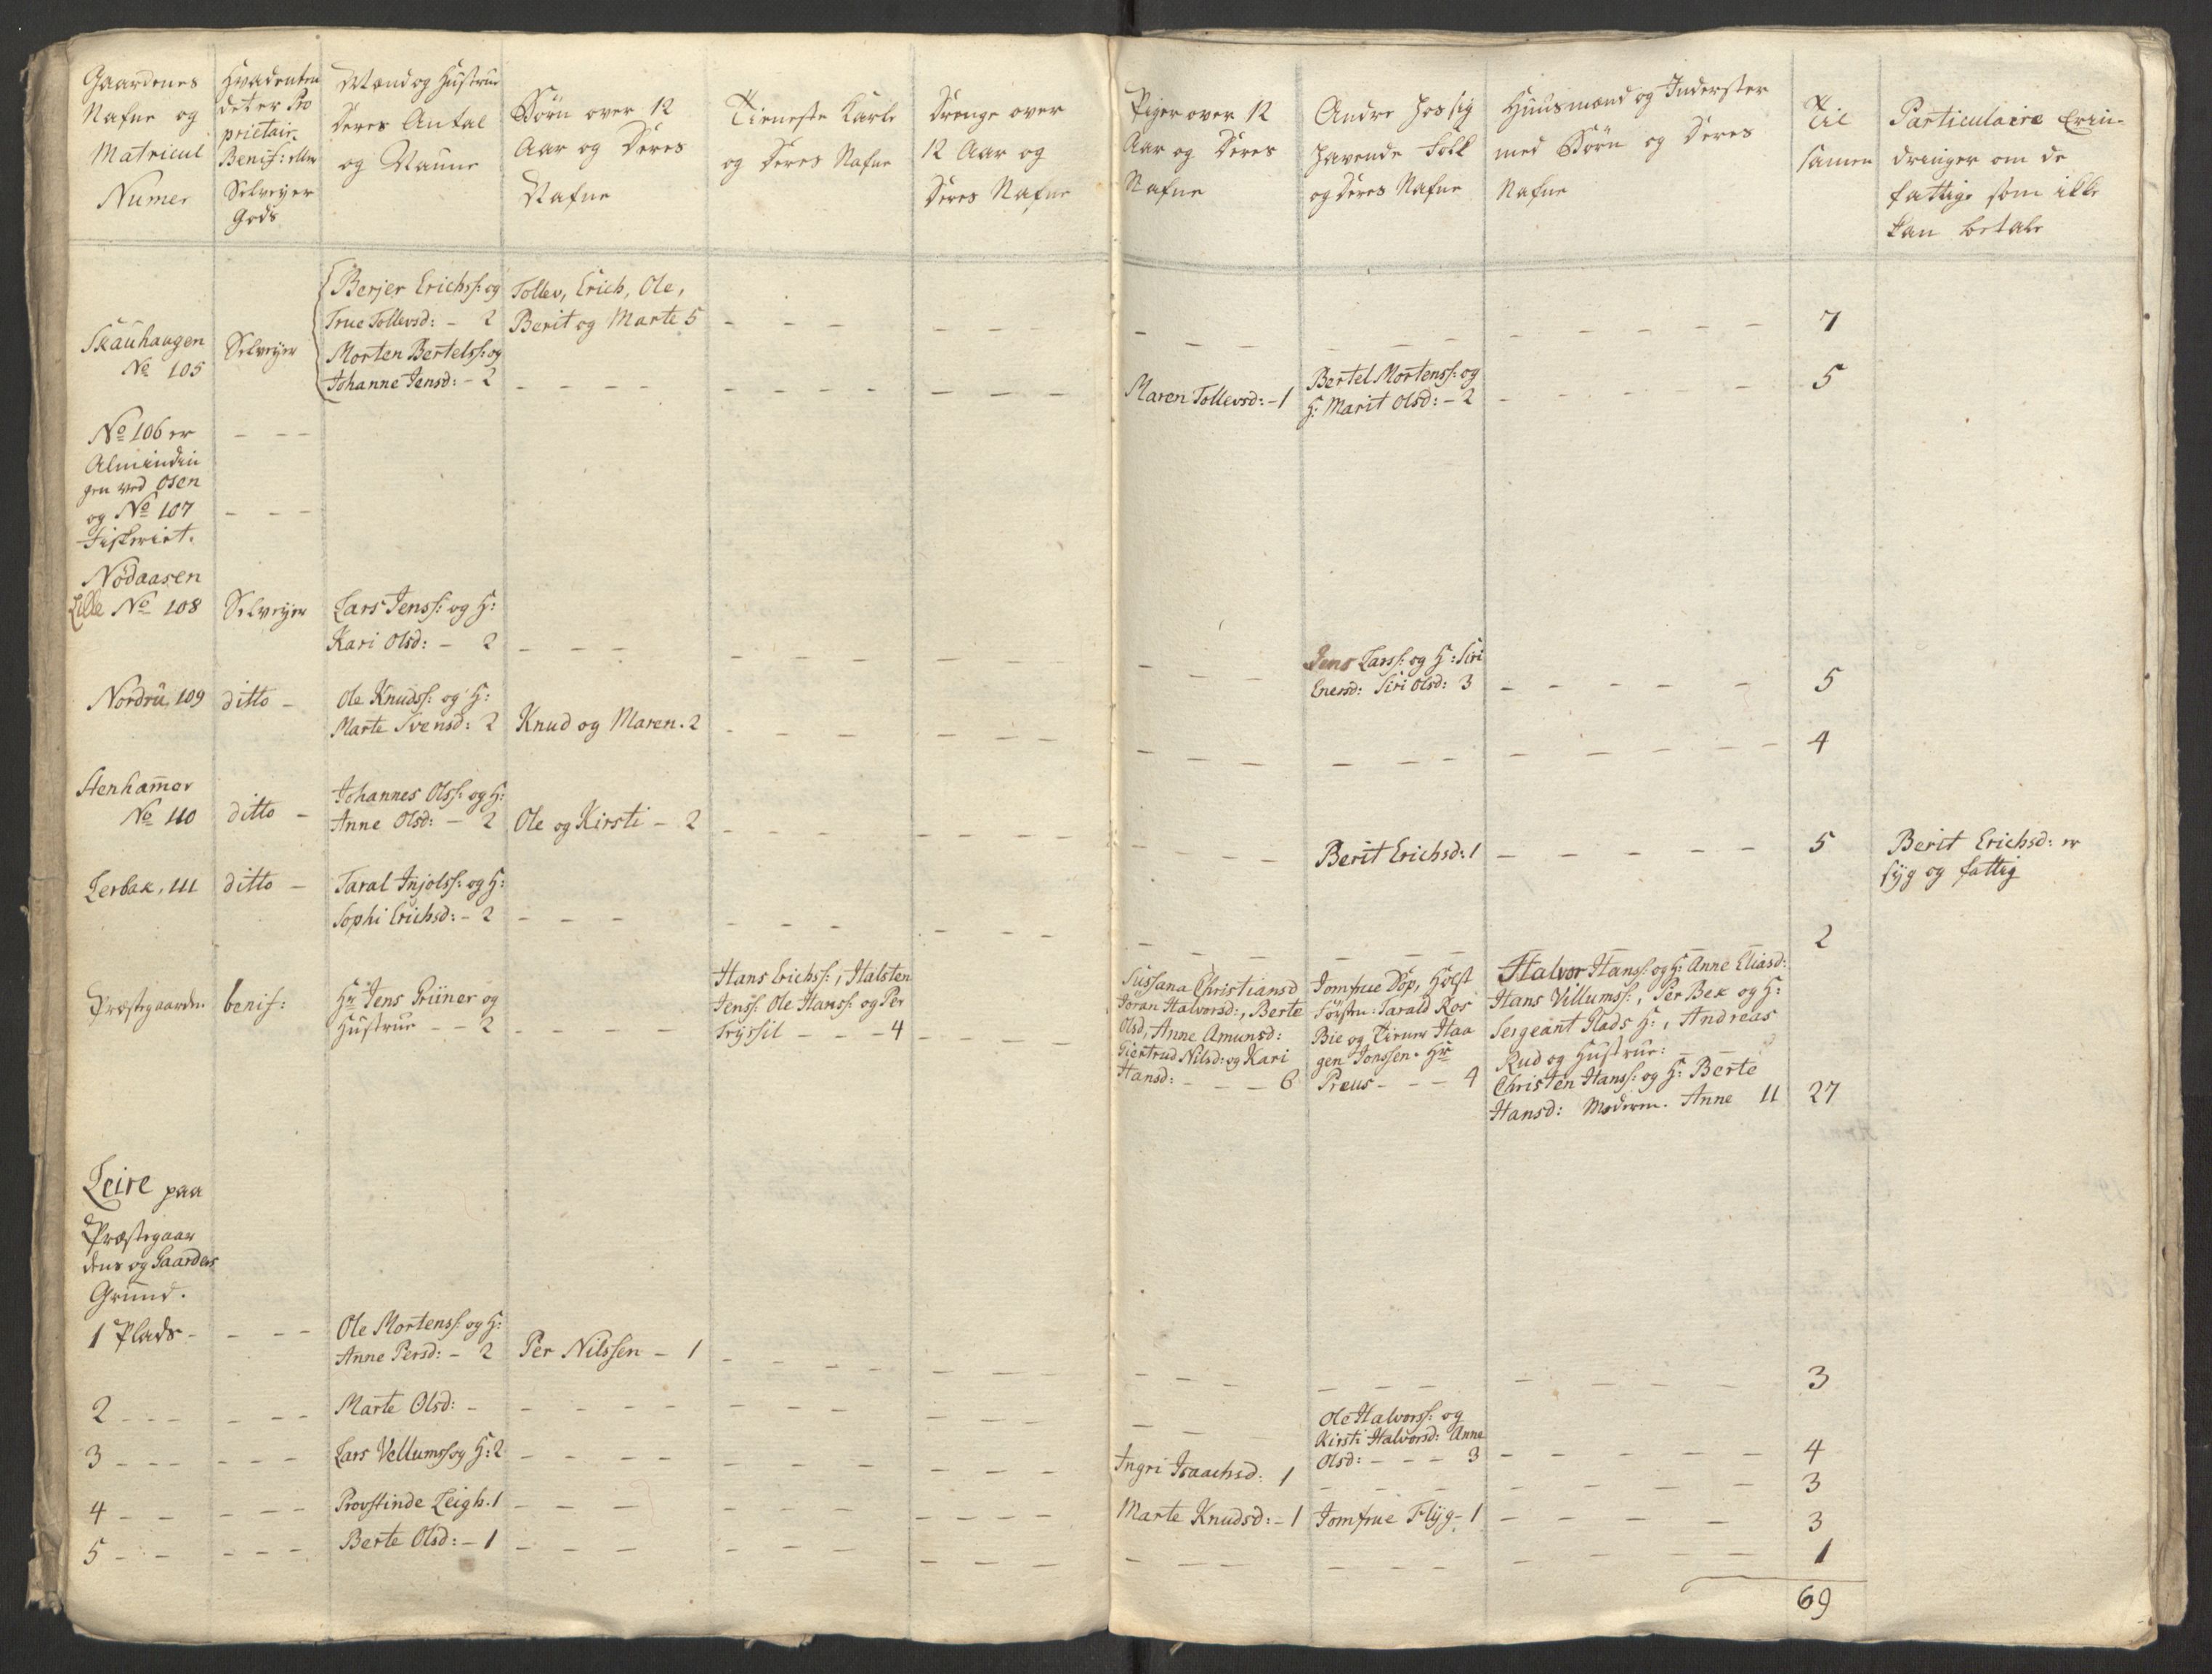 Gaardenes
Nafne og
Matricul
Numer
Hvadenten
det er Pro
prietair,
Benif: eller
Selveyer
Gods
Mænd og Hustrue
Deres Antal
og Naune
Børn over 12
Aar og Deres
Nafne
Tieneste Karle
og Deres Nafne
Drenge over
12 Aar og
Deres Nafne
Piger over 12
Aar og Deres
Nafne
Andre hos sig
havende Folk
og Deres Nafne
Huusmænd og Inderster
med Børn og Deres
Nafne
Til
samen
Particulaire Erin-
dringer om de
fattige som ikke
kan betale
Skauhaugen
No 105
Selveyer
Berjer Erichss: og
True Tollevsd: - 2
Tollev, Erich, Ole,
Berit og Marte 5
7
Morten Bertelss: og
Johanne Jensd: - 2
Maren Tollevsd: - 1
Bertel Mortenss: og
H: Marit Olsd: - 2
5
No 106 er
Almindin
gen ved Osen
og No 107
Fiskeriet.
Nødaasen
Lille No 108
Selveyer
Lars Jenss: og H:
Kari Olsd: - 2
Jens Larss: og H: Siri
Enersd: Siri Olsd: 3
5
Nordrü 109
ditto -
Ole Knudss: og H:
Marte Svensd: 2
Knud og Maren. 2
4
Stenham̅er
No 110
ditto -
Johannes Olss: og H:
Anne Olsd: - 2
Ole og Kirsti - 2
Berit Erichsd: 1
5
Berit Erichsd: er
syg og fattig
Lerbak, 111
ditto -
Taral Injolss: og H:
Sophi Erichsd: - 2
2
Præstegaarden
benif:
Hr Jens Grüner og
Hustrue - - 2
Hans Erichss:, Halsten
Jenss: Ole Hanss: og Per
Tryssil - - - 4
Sussana Christiansd
Jöran Halvorsd:, Berte
Olsd, Anne Amunsd:
Giertrud Nilsd: og Kari
Hansd: - - - 6
Jomfrue Dop, Holst
Tarald Ros
Bie og Tiener Haa
gen Jonssen. Hr
Preus - - - 4
Halvor Hanss: og H: Anne Eliasd:
Hans Villumss:, Per Bek og H:
Sergeant Rads H:, Andreas
Rud og Hustrue:
Christen Hanss: og H: Berte
Hansd: Moderen. Anne 11
27
Leire paa
Præstegaar
dens og Gaardens
Grund.
1 Plads -
Ole Mortenss: og H:
Anne Persd: - 2
Per Nilssen - 1
3
2 - - -
Marte Olsd: -
Ole Halvorss: og
Kirsti Halvorsd: Anne
Olsd: - - - 3
4
3 - - -
Lars Vellumss og H: 2
Ingri Isaachsd: 1
3
4 - -
Provstinde Leigh. 1
Marte Knudsd: - 1
Jomfrue Flÿg - 1
3
5 - - -
Berte Olsd: - 1
1
69